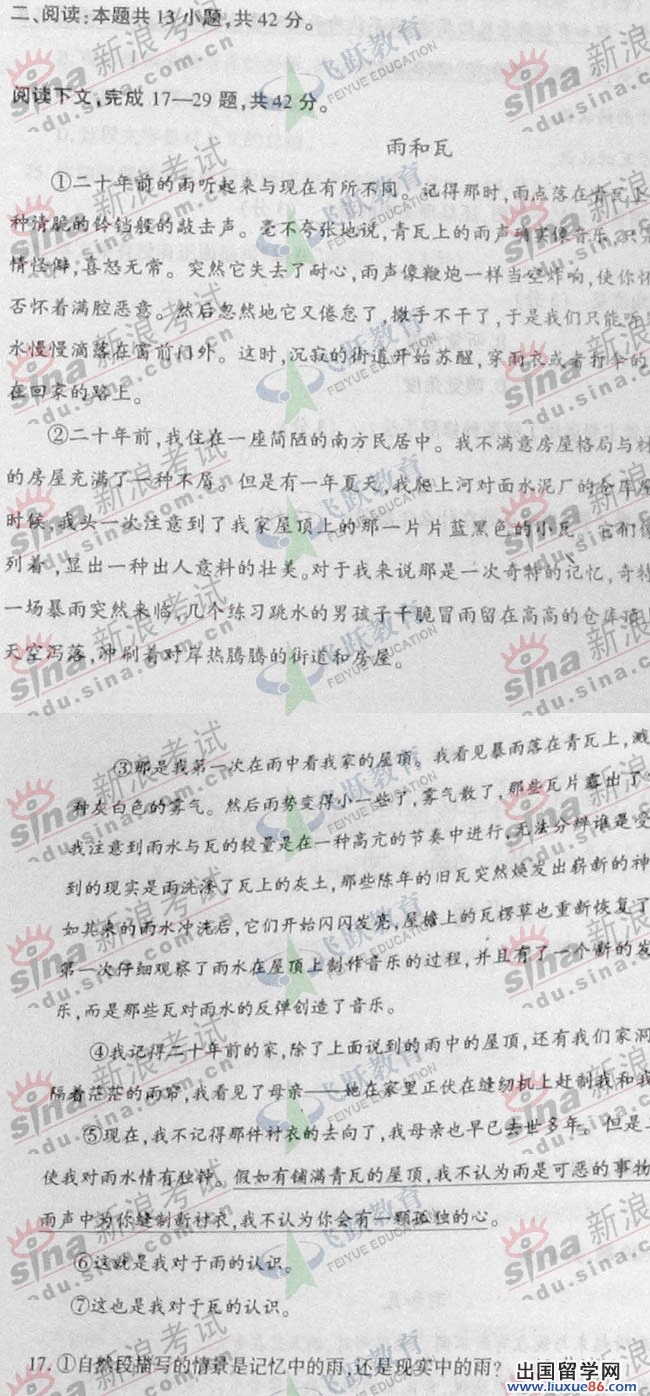 二、阅读:本题共13小题,共42分。
阅读下文,完成17—29题,共42分。
雨和瓦
①二十年前的雨听起来与现在有所不同。记得那时,雨点落在青瓦上
种清脆的铃铛般的敲击声。毫不夸张地说,青瓦上的雨声确实像音乐,只
情怪僻,喜怒无常。突然它失去了耐心,雨声像鞭炮一样当空炸响,使你怀
否怀着满腔恶意。然后忽然地它又倦怠了,撒手不干了,于是我们只能听
水慢慢滴落在窗前门外。这时,沉寂的街道开始苏醒,穿雨衣或者打伞的
在回家的路上。
②二十年前,我住在一座简陋的南方民居中。我不满意房屋格局与材
的房屋充满了一种不屑。但是有一年夏天,我爬上河对面水泥厂的仓库屋
时候,我头一次注意到了我家屋顶上的那一片片蓝黑色的小瓦。它们
列着,显出一种出人意料的壮美。对于我来说那是一次奇特的记忆,奇特
一场暴雨突然来临,几个练习跳水的男孩子干脆冒雨留在高高的仓库顶上
天空泻落,冲刷着对岸热腾腾的街道和房屋。
③那是我第一次在雨中看我家的屋顶。我看见暴雨落在青瓦上,溅
种灰白色的雾气。然后雨势变得小一些了,雾气散了,那些瓦片露出了
我注意到雨水与瓦的较量是在一种高亢的节奏中进行,无法分辨谁是受
到的现实是雨洗涤了瓦上的灰土,那些陈年的旧瓦突然焕发出崭新的神
如其来的雨水冲洗后,它们开始闪闪发亮,屋檐上的瓦楞草也重新恢复了
第一次仔细观察了雨水在屋顶上制作音乐的过程,并且有了一个新的发
乐,而是那些瓦对雨水的反弹创造了音乐。
④我记得二十年前的家,除了上面说到的雨中的屋顶,还有我们家洞
隔着茫茫的雨帘,我看见了母亲——她在家里正伏在缝纫机上赶制我和我
⑤现在,我不记得那件衬衣的去向了,我母亲也早已去世多年。但是
使我对雨水情有独钟。假如有铺满青瓦的屋顶,我不认为雨是可恶的事物
雨声中为你缝制新衬衣,我不认为你会有一颗孤独的心。
⑥这就是我对于雨的认识。
⑦这也是我对于瓦的认识。
17.①自然段描写的情景是记忆中的雨,还是现实中的雨?
新浪考试
sina
edu.sina.com.cn
飞跃教育
FEIYUE EDUCATION
出国留学网
www.liuxue86.com